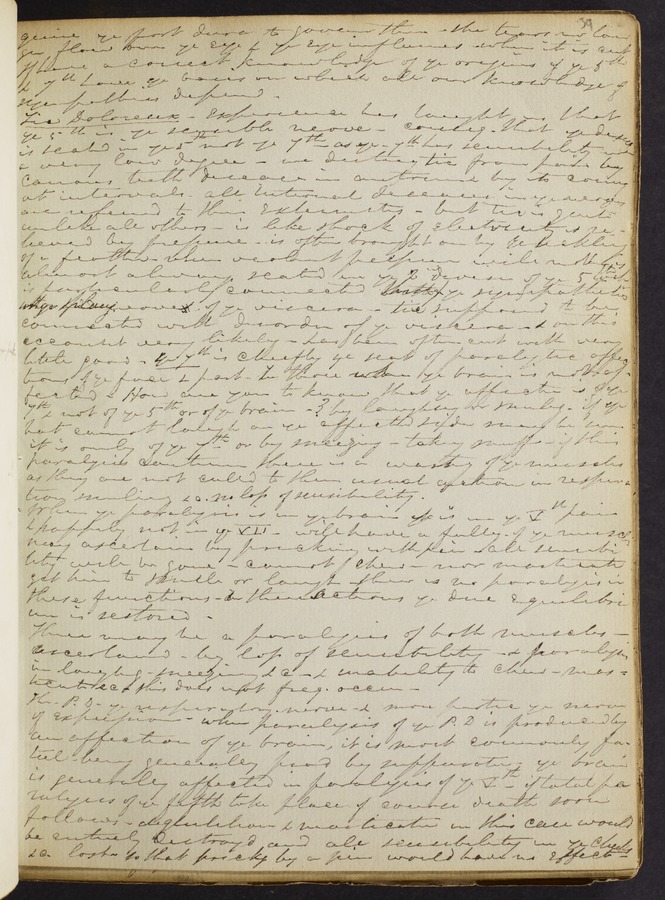 39
ye port dura to govern them - the tears no longer
flow over ye Eye & ye Eye influences when it is cut
have a correct knowledge of ye origins of ye 5th
& 7th have ye basis on which all our knowledge of
sympathies depend.
Tic Doloreux - Experience has taught us that
ye 5th is ye sensible nerve - ye disease
is seated in ye 5th not ye 7th as ye 7th has sensibility in
a very low degree - are distinctic from pain by
carious teeth disease in antrum by its coming
at intervals. all Internal diseases in ye
are referred to their Extremities - but tic is
unlike all others - is like shock of Electricity is re-
lieved by pressure - is often brought on by ye tickling
of a feather when violent pressure will not
almost always seated in ye 2d division of ye 5
is particularly connected with ye sympathetic
nerves of ye viscera - tic supposed to be
connected with disorder of ye viscera - & on this
account very likely - has been often cut with very
little good - ye 7th is chiefly ye seat of paralytic affec
tions of ye face & part. In those when ye brain is not af-
fected & How are you to know that ye affection is of ye
7th not of ye 5th or of ye brain -? by laughing or smiling. If ye
pat cannot laugh on ye affected side
it is only of ye 7th or by sneezing - taking snuff - if this
paralysis continue there is a wasting of ye muscles
as they are not called to their usual action in respira-
tion smiling &c. no loss of sensibility.
When ye paralysis is in ye brain it is in ye Vth pair
& not in ye VII - will have a falling of ye muscles
may ascertain by pricking with pin all sensibi
lity will be gone - cannot chew - nor masticate
get him to smile or laugh - there is no paralysis in
these functions - & these actions ye due equilibri
um is restored -
There may be a paralysis of both muscles -
ascertained by loss of sensibility - & paralysis
in laughing sneezing &c - & inability to chew - mas-
ticate &c this does not freq. occur -
The P.D. ye respiratory nerve & more partic ye nerve
of Expression - when paralysis of ye P.D is produced by
an affection of ye brain, it is most commonly fa
tal being generally foll by suppurating ye brain
is generally affected in paralysis of ye 5th - if total pa
ralysis of ye fifth take place of course death soon
follows - deglutition & mastication in this case would
be entirely destroyd and all sensibility in ye cheeks
&c lost - so that pricks by a pin would have no Effect -